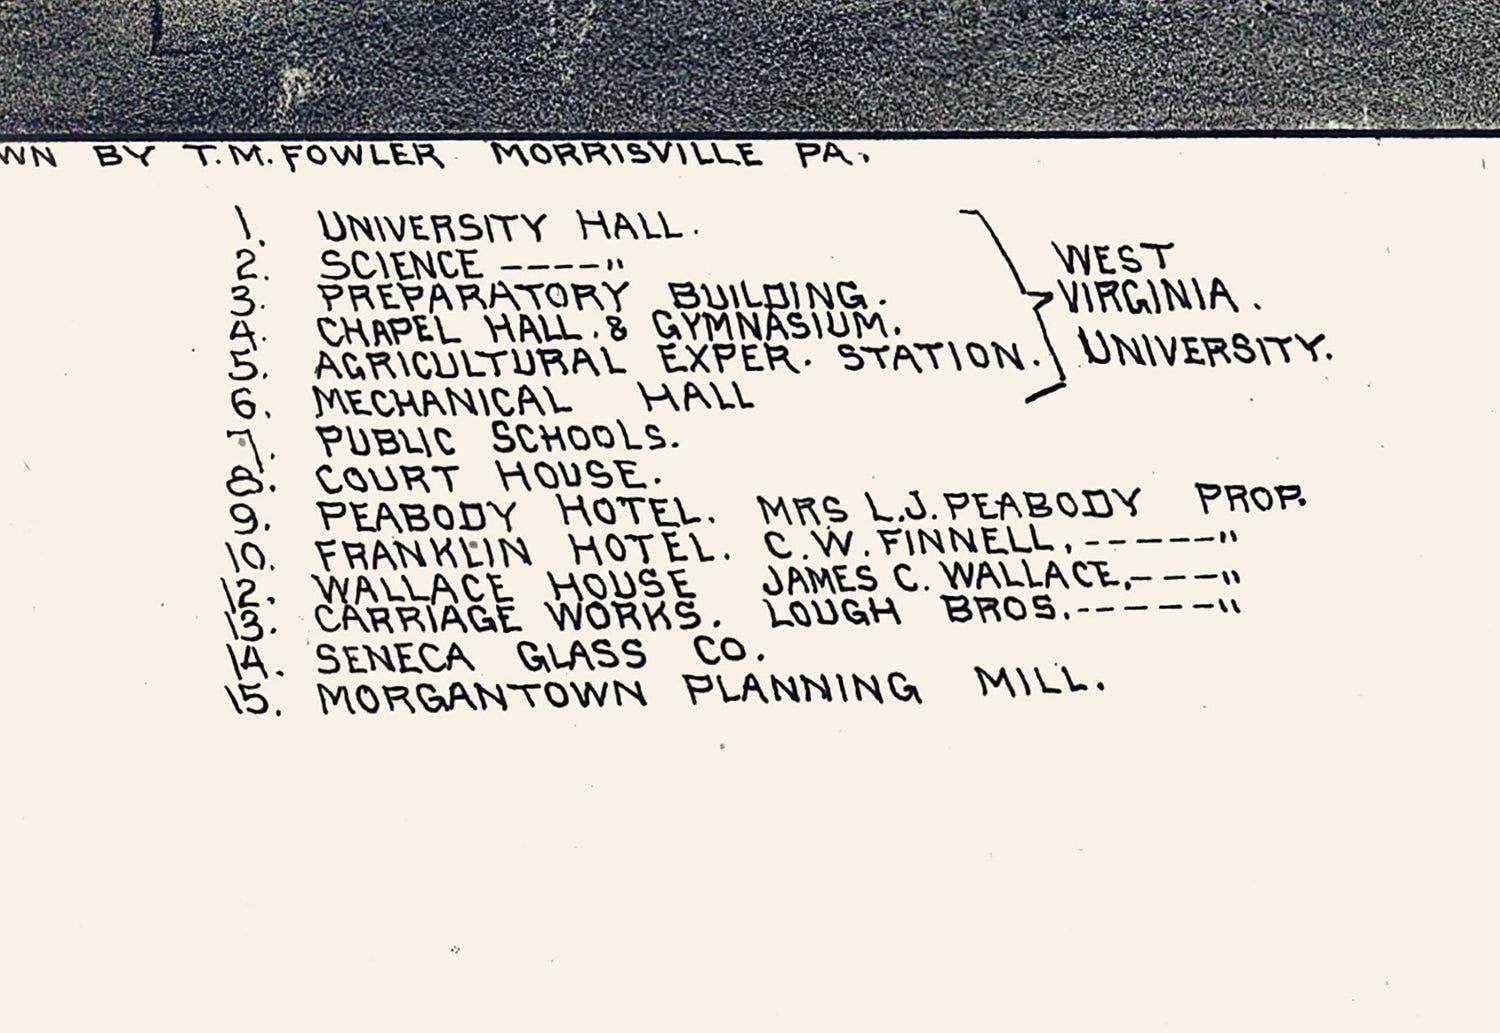 WN BY T.M. FOWLER MORRISVILLE PA.
1. UNIVERSITY HALL.
2. SCIENCE ----"
3. PREPARATORY BUILDING.
4. CHAPEL HALL. & GYMNASIUM.
5. AGRICULTURAL EXPER. STATION.
6. MECHANICAL HALL
WEST
VIRGINIA.
UNIVERSITY.
7. PUBLIC SCHOOLS.
8. COURT HOUSE.
9. PEABODY HOTEL. MRS L.J. PEABODY PROP.
10. FRANKLIN HOTEL. C.W. FINNELL, ------"
12. WALLACE HOUSE JAMES C. WALLACE, ---"
13. CARRIAGE WORKS. LOUGH BROS. ------"
14. SENECA GLASS CO.
15. MORGANTOWN PLANNING MILL.